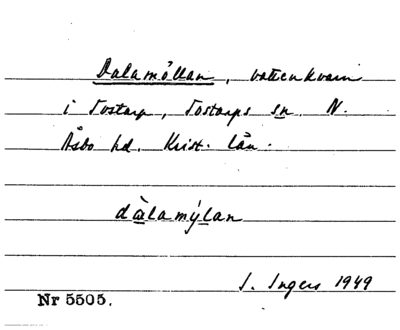 Dalamöllan, vattenkvarn
i Tostarp, Tostarps sn. N.
Åsbo hd. Krist. län.
dàlamýlan
I. Ingers 1949
Nr 5505.